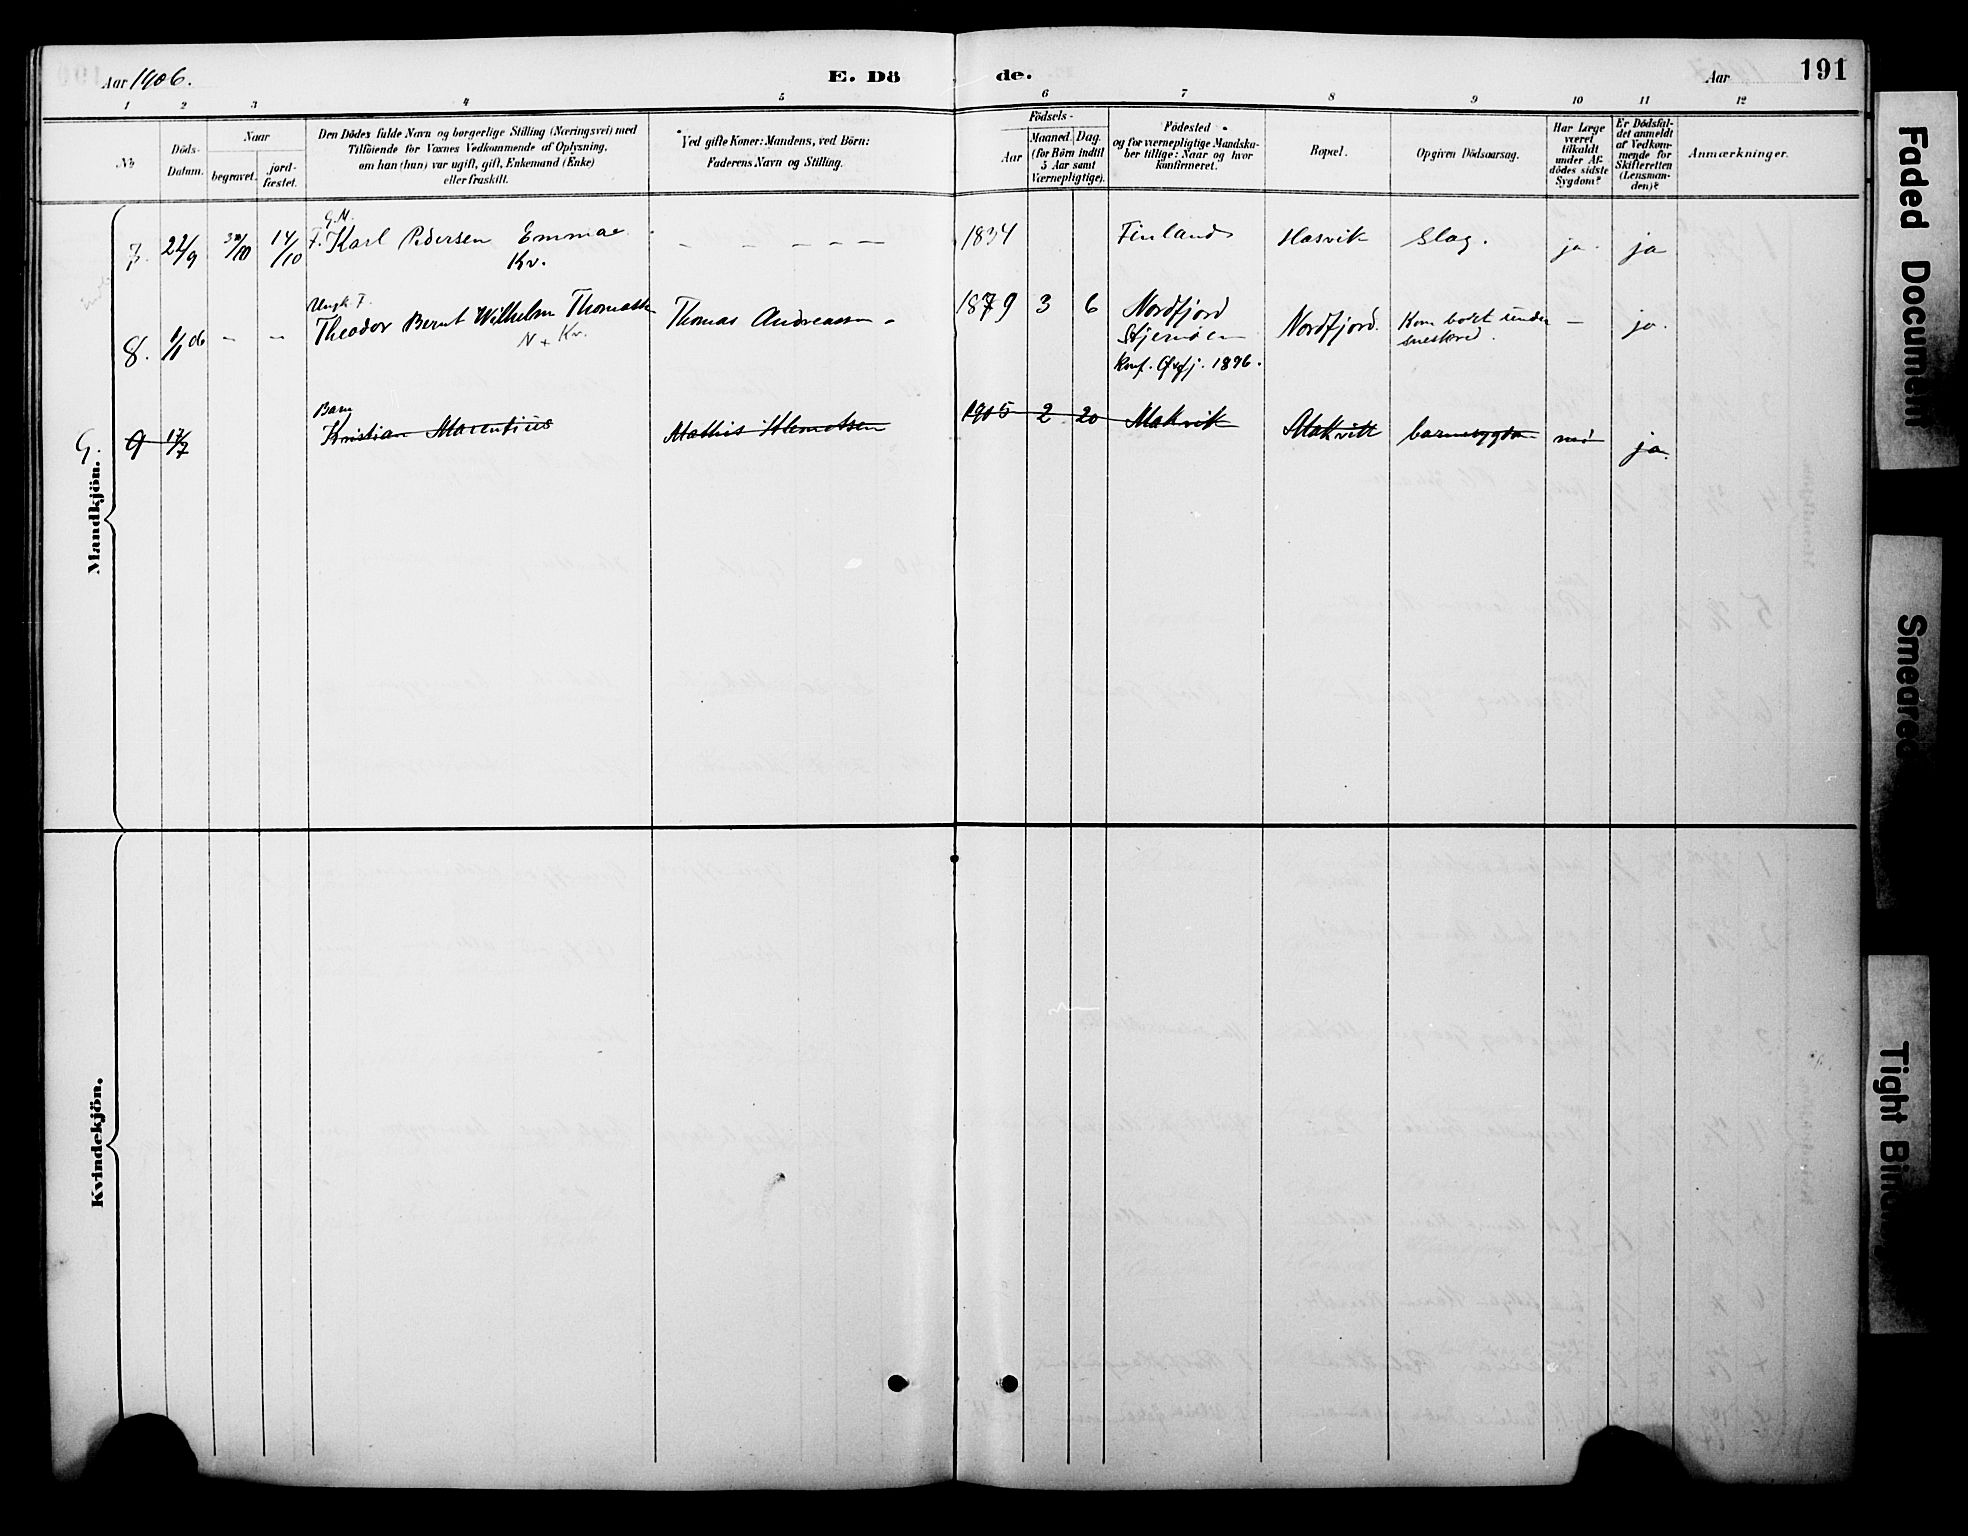 Aar 1906.
E. Dö de.
Aar
191
1 2 3 4 5 6 7 8 9 10 11 12
No
Döds-
Datum.
Naar
begravet.
jord-
fæstet.
Den Dödes fulde Navn og borgerlige Stilling (Næringsvei) med
Tilföiende for Voxnes Vedkommende af Oplysning,
om han (hun) var ugift, gift, Enkemand (Enke)
eller fraskilt.
Ved gifte Koner: Mandens, ved Börn:
Faderens Navn og Stilling.
Födsels-
Aar
Maaned. Dag.
(for Börn indtil
5 Aar samt
Værnepligtige).
Födested
og for værnepligtige Mandska-
ber tillige: Naar og hvor
konfirmeret.
Bopæl.
Opgiven Dödsaarsag.
Har Læge
været
tilkaldt
under Af-
dödes sidste
Sygdom?
Er Dödsfal-
det anmeldt
af Vedkom-
mende for
Skifteretten
(Lensman-
den)?
Anmærkninger.
Mandkjön.
G. M.
7. 22/9 30/10 14/10 F. Karl Pedersen Emmae - - - - - 1834 Finland Hasvik Slag. ja. ja
Kv.
Ungk. F.
8. 1/1 06 - - Theodor Bernt Wilhelm Thomassen Thomas Andreassen - 1879 3 6 Nordfjord Nordfjord. Kom bort under - ja.
N + Kv. Stjernöen sneskred.
Konf. Øxfj. 1896.
Barn
G. 9 17/7 Kristian Marentius Mathis Klemetsen 1905 2 20 Makvik Makvik barnesygdom nei ja.
Kvindekjön.
Faded Document
Smeared
Tight Bin